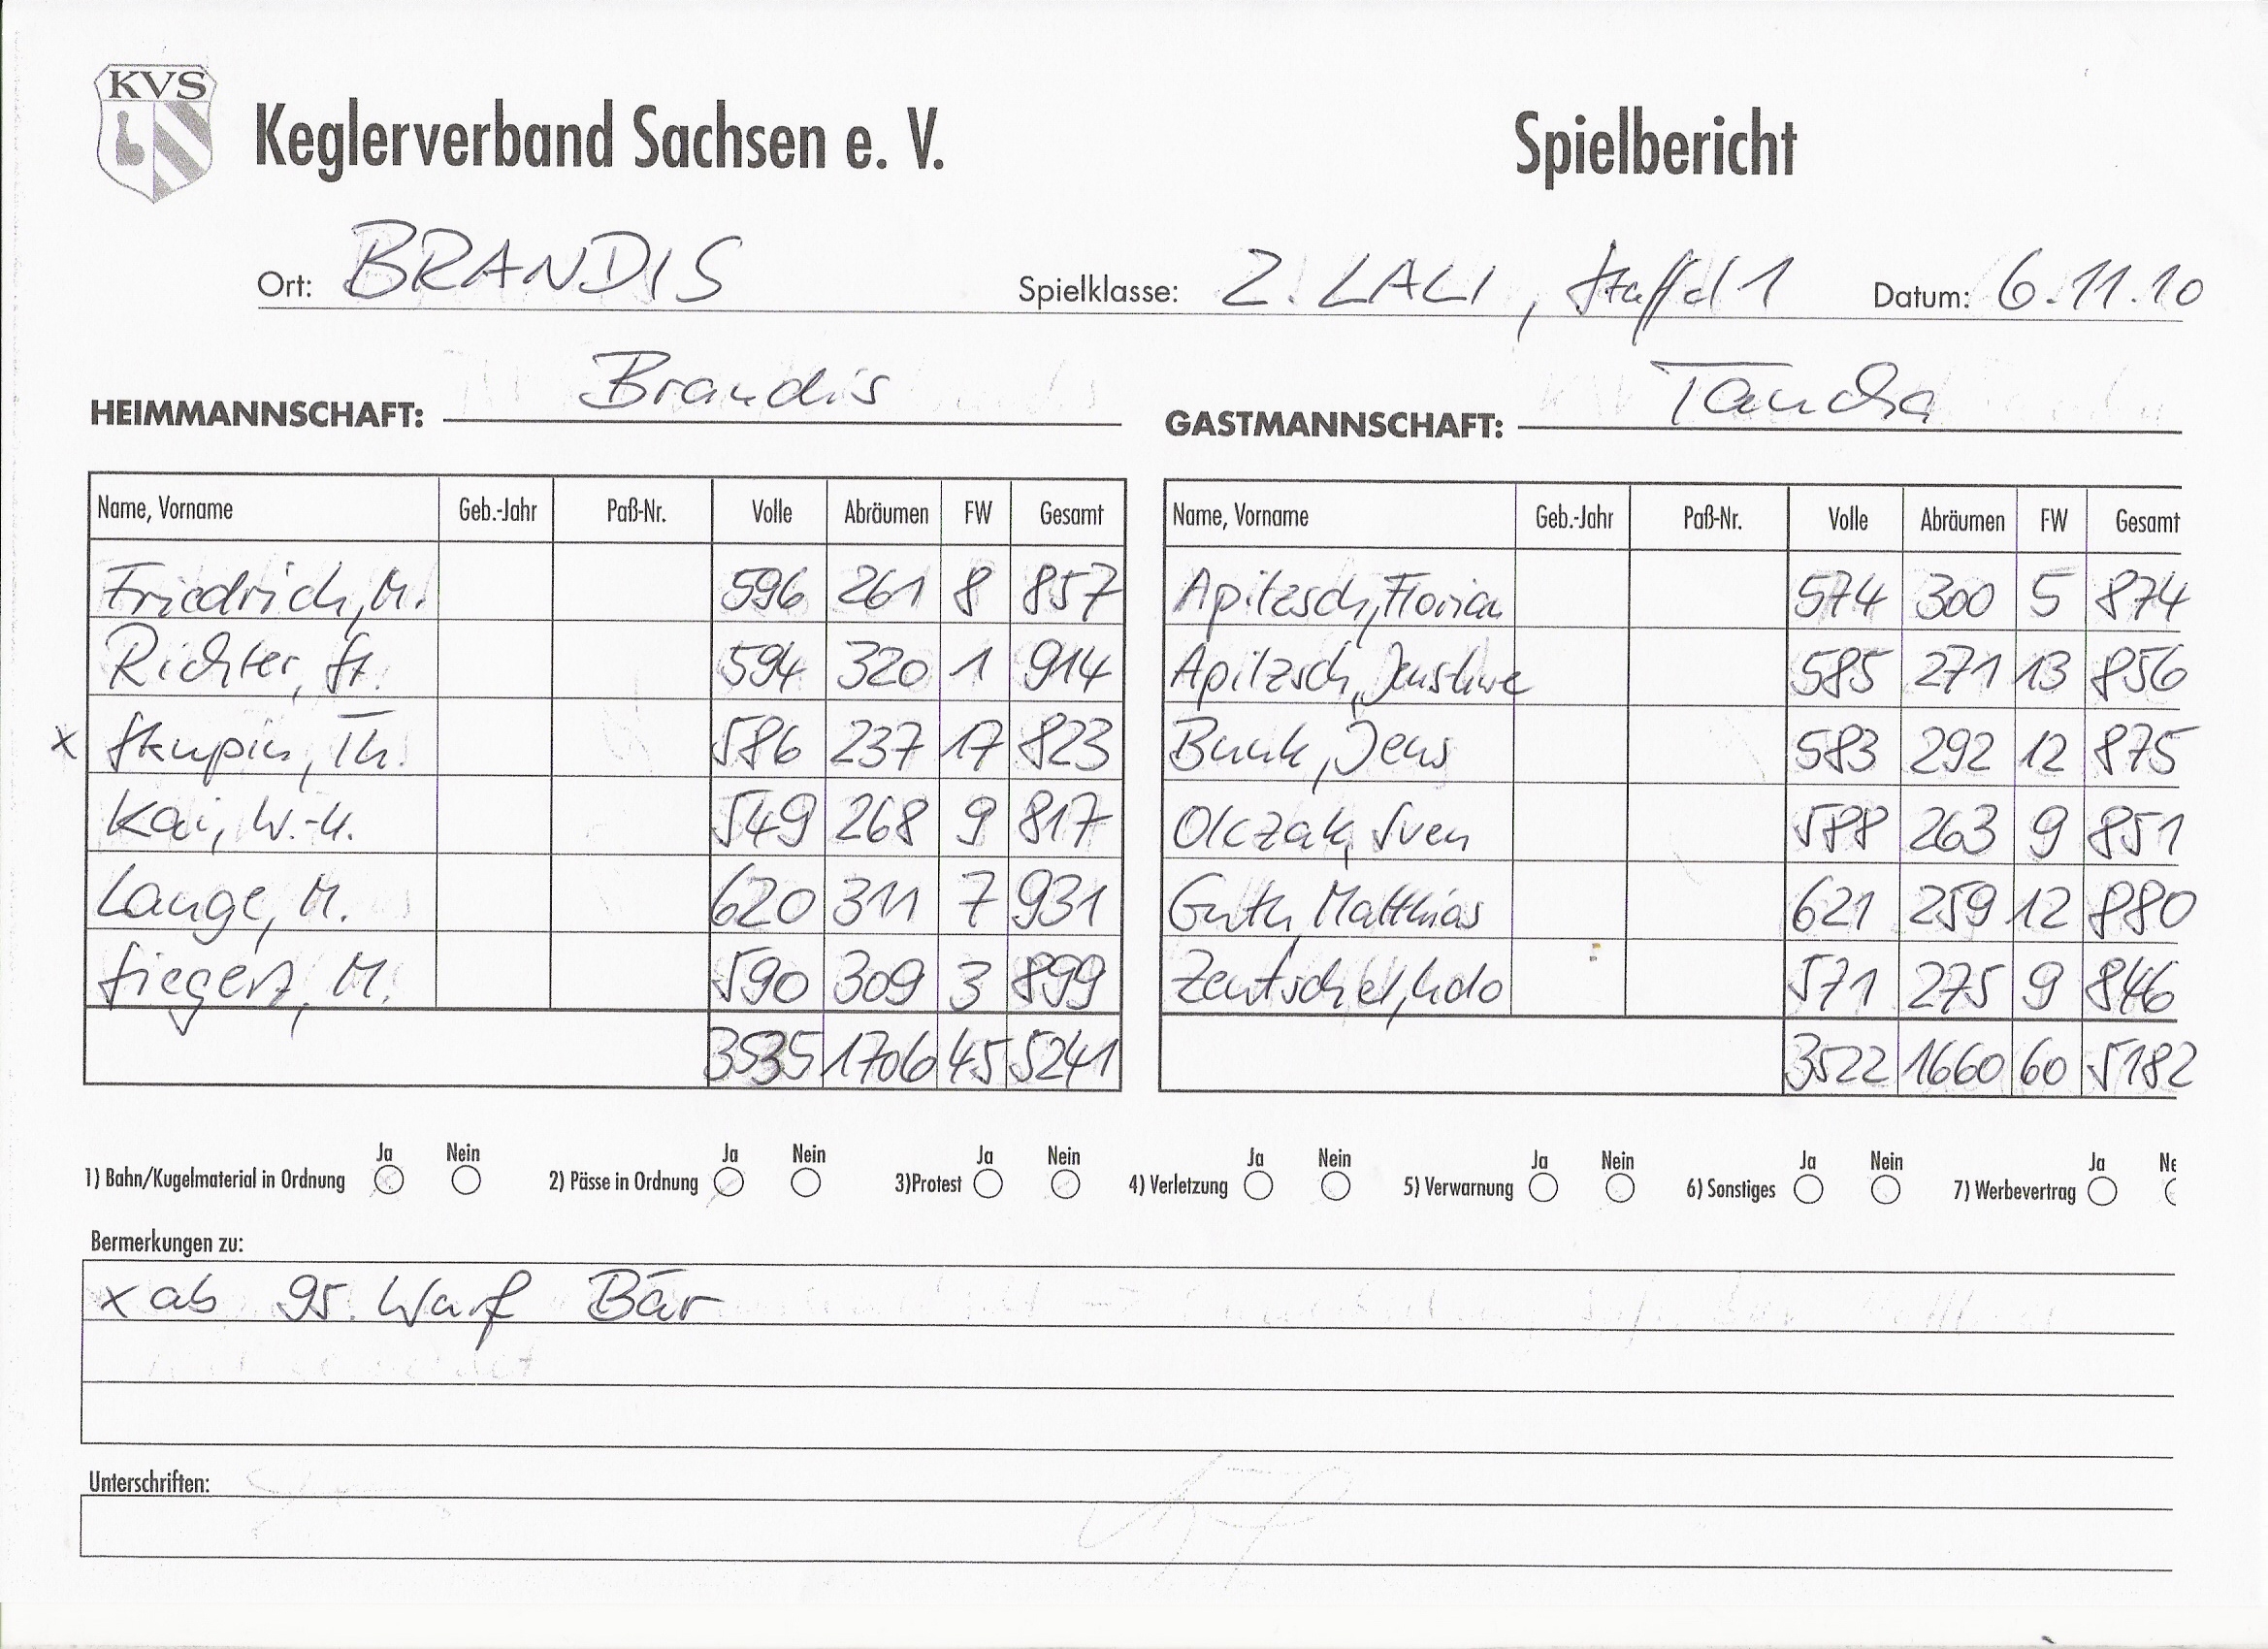 KVS
Keglerverband Sachsen e. V. Spielbericht
Ort: BRANDIS Spielklasse: 2. LALI, Staffel 1 Datum: 6.11.10
HEIMMANNSCHAFT: Brandis GASTMANNSCHAFT: Taucha
Name, Vorname Geb.-Jahr Paß-Nr. Volle Abräumen FW Gesamt Name, Vorname Geb.-Jahr Paß-Nr. Volle Abräumen FW Gesamt
Friedrich, M. 596 261 8 857 Apitzsch, Florian 574 300 5 874
Richter, St. 594 320 1 914 Apitzsch, Jensuwe 585 271 13 856
x Skupin, Th. 586 237 17 823 Bunk, Jens 583 292 12 875
Kai, W.-U. 549 268 9 817 Olczak, Sven 588 263 9 851
Lange, M. 620 311 7 931 Guth, Matthias 621 259 12 880
Siegert, M. 590 309 3 899 Zentschel, Udo 571 275 9 846
3535 1706 45 5241 3522 1660 60 5182
Ja Nein Ja Nein Ja Nein Ja Nein Ja Nein Ja Nein Ja Ne
1) Bahn/Kugelmaterial in Ordnung 2) Pässe in Ordnung 3)Protest 4) Verletzung 5) Verwarnung 6) Sonstiges 7) Werbevertrag
Bermerkungen zu:
x ab 95. Wurf Bär
Unterschriften: